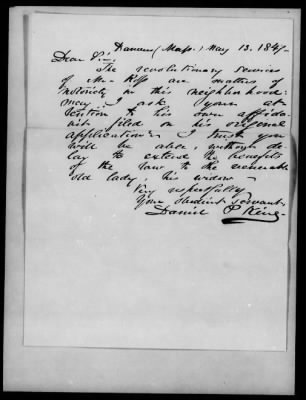 Danvers (Mass.) May 13. 1847.
Dear Sir:
The revolutionary services
of Mr. Ross are matters of
notoriety in this neighborhood:
may I ask yours at-
tention to his own affida-
vit filed on his original
application: I trust you
will be able, without de-
lay to extend the benefits
of the law to the venerable
old lady, his widow.
Very respectfully
Your obedient servant
Daniel P. King.